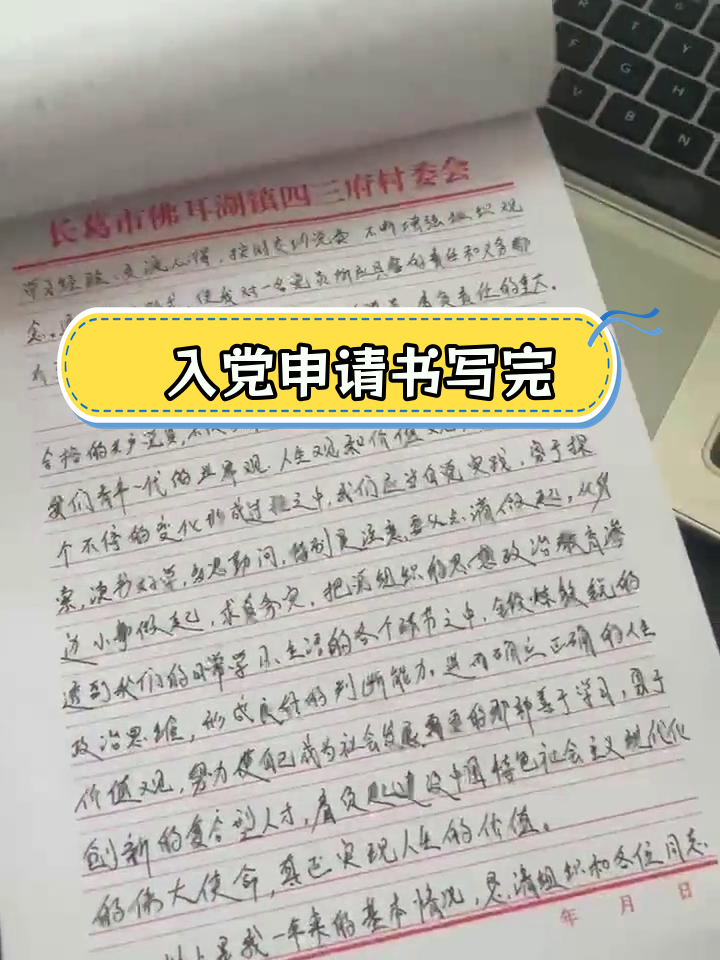 长葛市佛耳湖镇四三府村委会
学习经验、交流心得,按时交纳党费,不断增强组织观
念。使我对一名党员所应具备的责任和义务都
肩负责任的重大。
入党申请书写完
合格的共产党员,不仅
我们青年一代的世界观、人生观和价值观
个不停的变化形成过程之中,我们应当自觉实践,勇于探
索,读书好学,多思勤问,特别更注意要从点滴做起,从身
边小事做起,求真务实,把党组织的思想政治教育渗
透到我们的日常学习、生活的各个环节之中,锻炼敏锐的
政治思维,形成良好的判断能力,进而确立正确的人生
价值观,努力使自己成为社会发展需要的那部善于学习,勇于
创新的复合型人才,肩负起建设中国特色社会主义现代化
的伟大使命,真正实现人生的价值。
以上是我一年来的基本情况,恳请组织和各位同志
年 月 日
V B N M